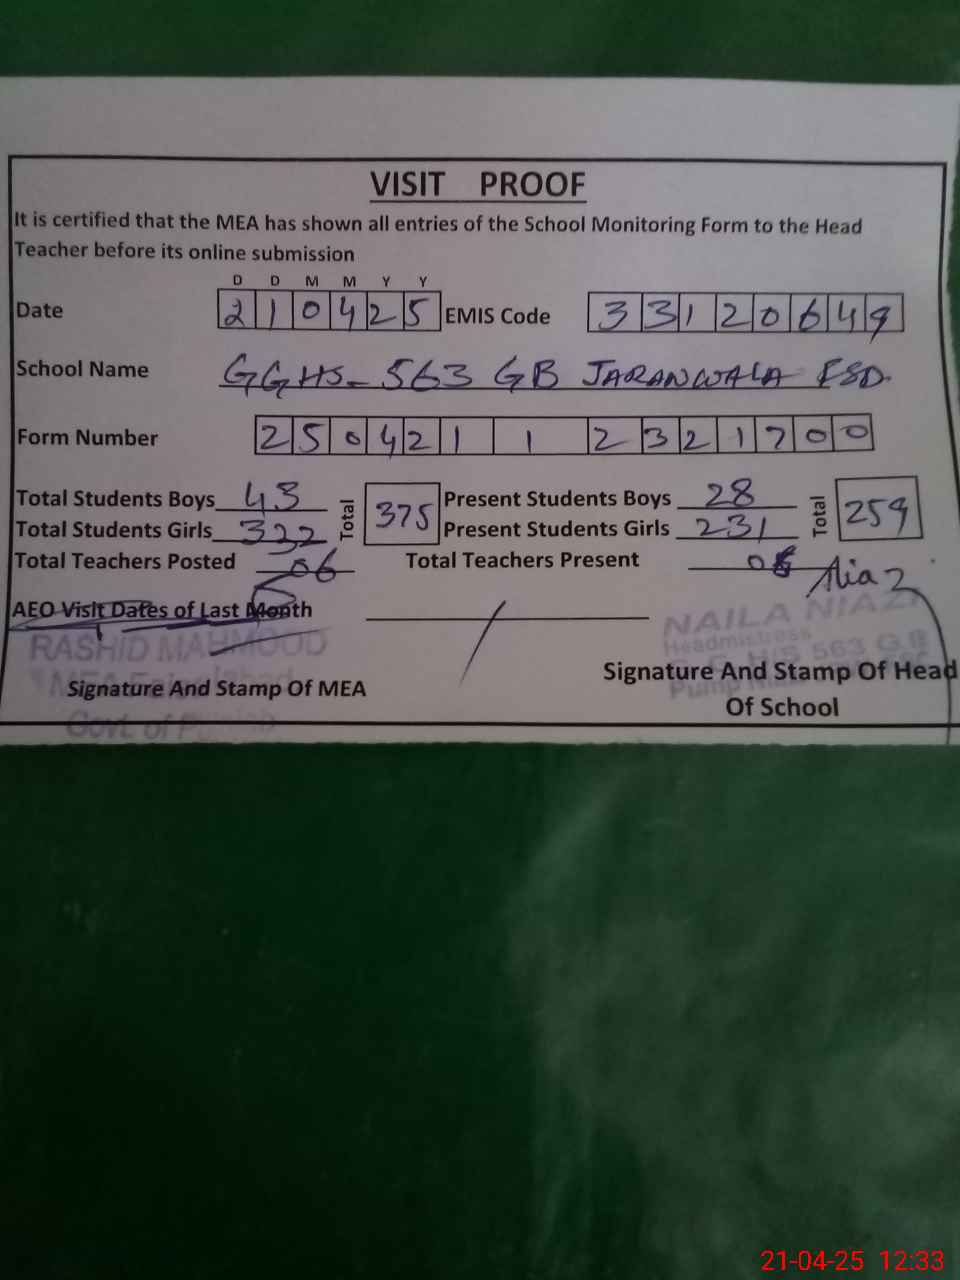 VISIT PROOF
It is certified that the MEA has shown all entries of the School Monitoring Form to the Head
Teacher before its online submission
D D M M Y Y
Date 2 1 0 4 2 5 EMIS Code 3 3 1 2 0 6 4 9
School Name GGHS- 563 GB JARANWALA FSD.
Form Number 2 5 0 4 2 1 1 2 3 2 1 7 0 0
Total Students Boys 43 Total 375 Present Students Boys 28 Total 259
Total Students Girls 332 Present Students Girls 231
Total Teachers Posted 06 Total Teachers Present
AEO Visit Dates of Last Month
NAILA NIAZI
Headmistress
RASHID MAHMOOD
H/S 563 G.B
Signature And Stamp Of MEA
Signature And Stamp Of Head
Of School
Govt. of Punjab
21-04-25 12:33